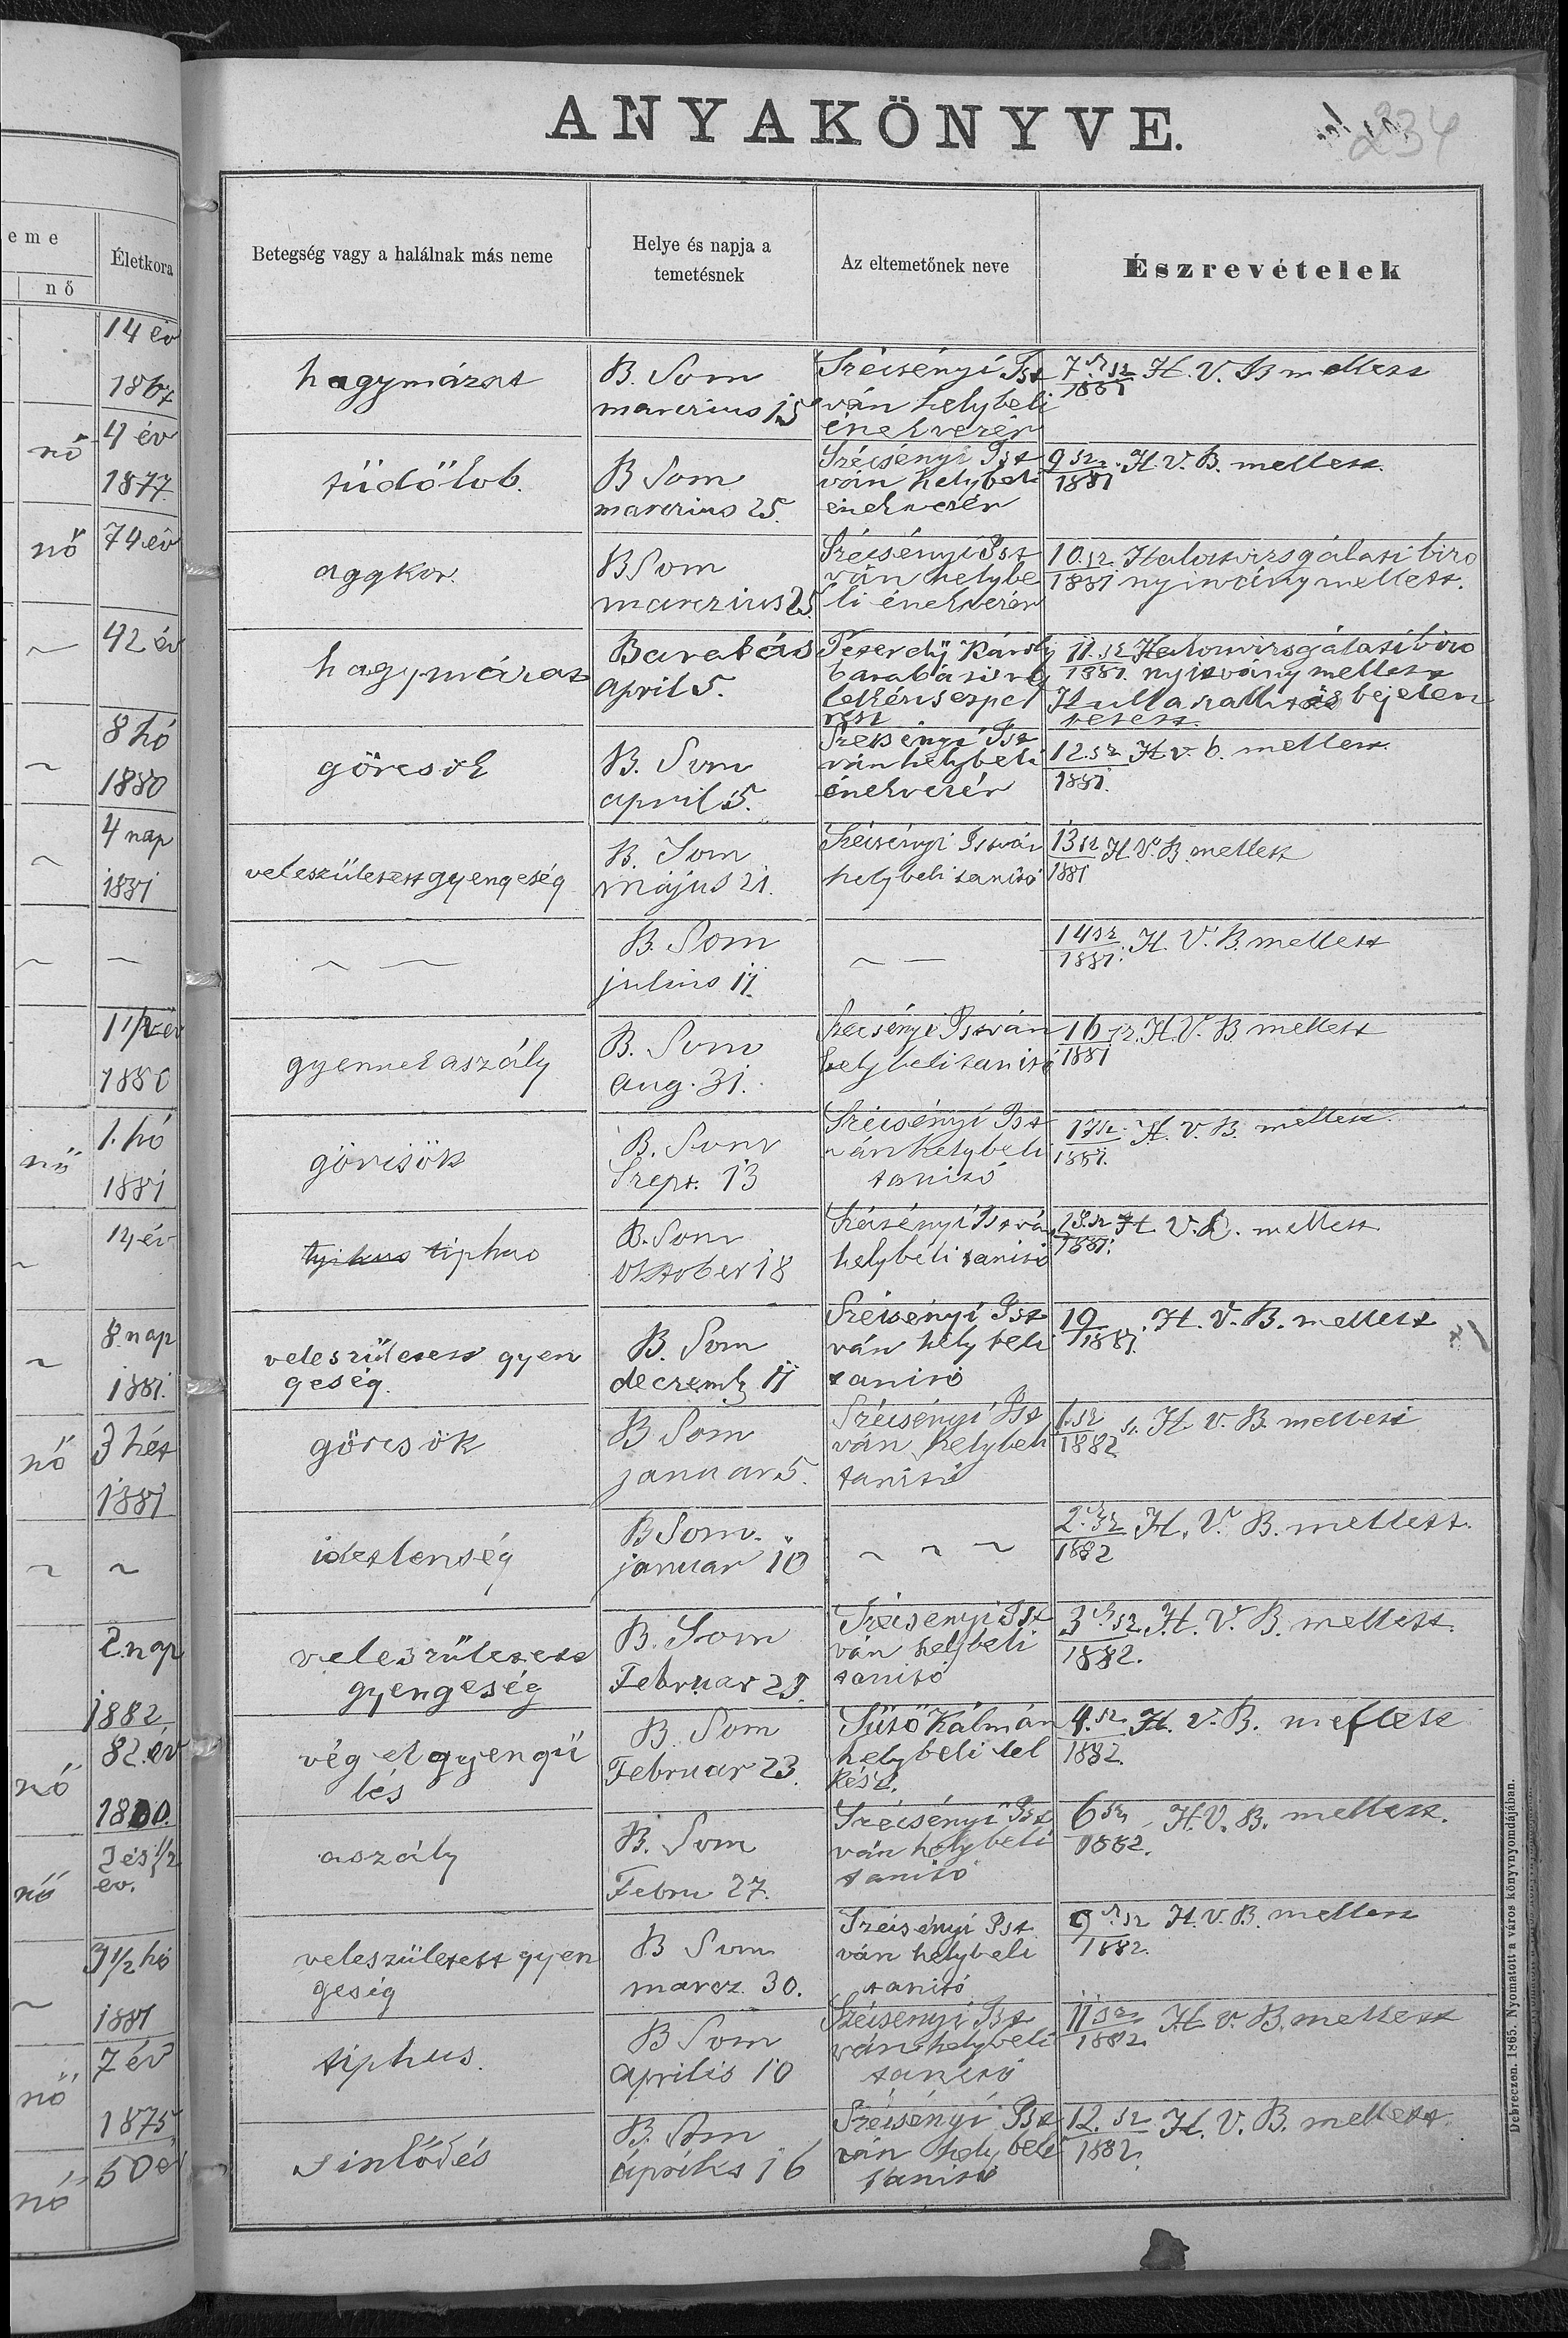 ANYAKÖNYVE.
234
eme
nő
Életkora
Betegség vagy a halálnak más neme
Helye és napja a
temetésnek
Az eltemetőnek neve
Észrevételek
14 év
1867
hagymázat
B. Som
marczius 15
Szécsényi Ist
ván helybeli
énekvezér
7. sz H. V. B mellett
1881
nő
4 év
1877
tüdőlob.
B Som
marczius 25.
Szécsényi Ist
ván helybeli
énekvezér
9 sz. H. V. B. mellett.
1881
nő
74 év
aggkor.
B Som
marczius 25.
Szécsényi Ist
ván helybe
li énekvezér
10. sz. Halottvizsgálati bizo
1881 nyitvány mellett.
~
42 év
hagymázat
Barabás
april 5.
Károly
11. sz Halottvizsgálati bizo
1881. nyitvány mellett
Hulla bejelen
tetett.
~
8 hó
1880
görcsök
B. Som
april 5.
Szécsényi Ist
ván helybeli
énekvezér
12. sz H. v. b. mellett
1881.
~
4 nap
1881
veleszületett gyengeség
B. Som
május 21.
Szécsényi István
helybeli tanitó
13 sz H. V. B. mellett
1881
~ —
~ —
B. Som
julius 11.
~ —
14 sz H. V. B. mellett
1881.
1 1/2 év
1880
gyermekaszály
B. Som
aug. 31.
Szécsényi István
helybeli tanitó
16 sz. H. V. B. mellett
1881
nő
1. hó
1881
görcsök
B. Som
Szept. 13
Szécsényi Ist
ván helybeli
tanitó
17 sz. H. V. B. mellett.
1881.
~
14 év
tiphus
B. Som
Oktober 18
Szécsényi István
helybeli tanitó
18. sz H. V. B. mellett
1881.
~
8. nap
1881.
veleszületett gyen
geség.
B. Som
deczemb 11
Szécsényi Ist
ván helybeli
tanitó
19 H. V. B. mellett
1881.
nő
3 hét
1881
görcsök
B Som
januar 5.
Szécsényi Ist
ván helybeli
tanitó
1. sz H. V. B. mellett
1882
~ ~
idétlenség
B Som.
januar 10
~ ~ ~
2. sz H. V. B. mellett.
1882
2. nap
1882
veleszületett
gyengeség
B. Som
Februar 23.
Szécsényi Ist
ván helybeli
tanitó
3. sz. H. V. B. mellett.
1882.
nő
82. év
1800.
vég elgyengü
lés
B. Som
Februar 23.
Sütő Kálmán
helybeli lel
kész.
4. sz H. V. B. mellett
1882.
nő
2 és 1/2
év.
aszály
B. Som
Febru 27.
Szécsényi Ist
ván helybeli
tanitó
6 sz H. V. B. mellett.
1882.
~
3 1/2 hó
1881
veleszületett gyen
geség
B Som
marcz. 30.
Szécsényi Ist
ván helybeli
tanitó
9. sz H. V. B. mellett
1882.
nő
7 év
1875
tiphus.
B Som
április 10
Szécsényi Ist
ván helybeli
tanitó
11 sz H. V. B. mellett
1882
nő
50 é
sinlődés
B. Som
április 16
Szécsényi Ist
ván helybeli
tanitó
12. sz H. V. B. mellett.
1882.
Debreczen. 1865. Nyomatott a város könyvnyomdájában.